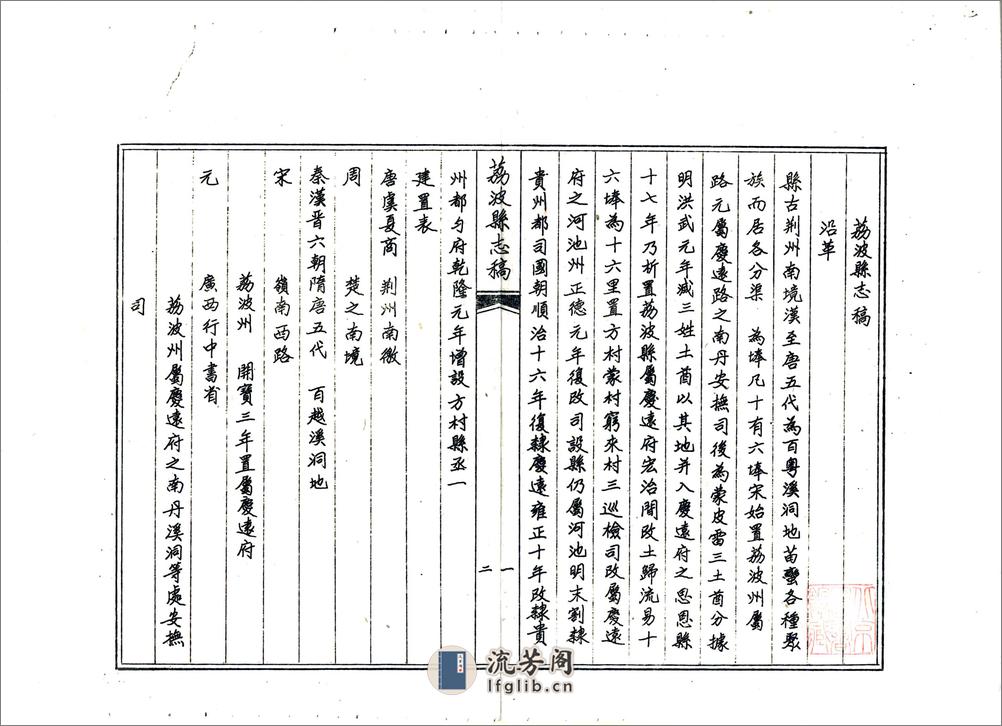 荔波縣志稿
沿革
縣古荆州南境漢至唐五代為百粤溪洞地苗蠻各種聚
族而居各分渠 為埲凡十有六埲宋始置荔波州屬
路元屬慶遠路之南丹安撫司後為蒙皮雷三土酋分據
明洪武元年减三姓土酋以其地并入慶遠府之思恩縣
十七年乃析置荔波縣屬慶遠府宏治間改土歸流易十
六埲為十六里置方村蒙村窮來村三巡檢司改屬慶遠
府之河池州正德元年復改司設縣仍屬河池明末割隸
貴州都司國朝順治十六年復隸慶遠雍正十年改隸貴
荔波縣志稿
一
二
州都匀府乾隆元年增設方村縣丞一
建置表
唐虞夏商 荆州南徼
周 楚之南境
秦漢晋六朝隋唐五代 百越溪洞地
宋 嶺南西路
荔波州 開寶三年置屬慶遠府
元 廣西行中書省
荔波州屬慶遠府之南丹溪洞等處安撫
司
流芳阁
lfglib.cn